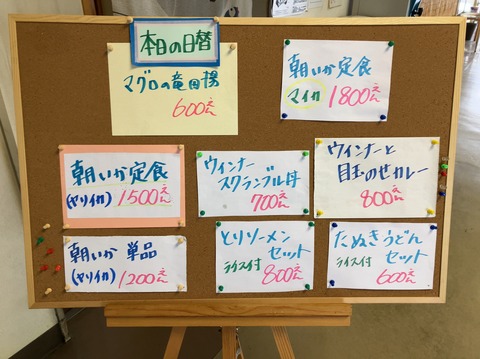 本日の日替
マグロの竜田揚
600えん
朝いか定食
マイカ 1800えん
朝いか定食
(ヤリイカ) 1500えん
ウィンナー
スクランブル付
700えん
ウィンナーと
目玉のせカレー
800えん
朝いか 単品
(ヤリイカ) 1200えん
とりソーメン
セット
ライス付 800えん
たぬきうどん
セット
ライス付 600えん